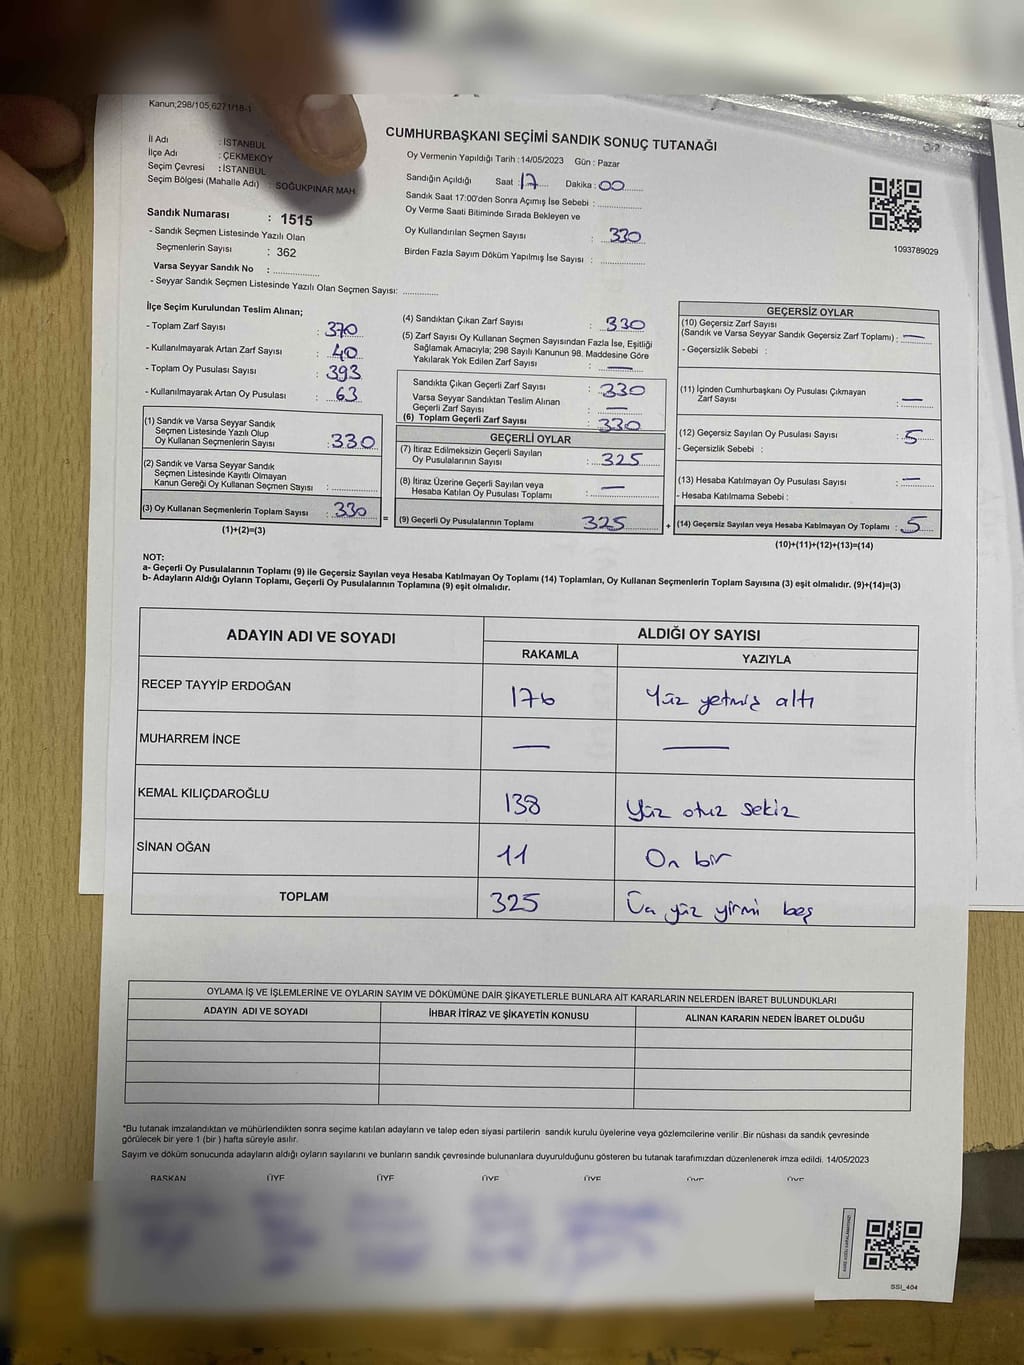 Kanun;298/105,6271/18-1
CUMHURBAŞKANI SEÇİMİ SANDIK SONUÇ TUTANAĞI
İl Adı : İSTANBUL
İlçe Adı : ÇEKMEKÖY
Seçim Çevresi : İSTANBUL
Seçim Bölgesi (Mahalle Adı) : SOĞUKPINAR MAH.
Sandık Numarası : 1515
- Sandık Seçmen Listesinde Yazılı Olan
Seçmenlerin Sayısı : 362
Varsa Seyyar Sandık No : ............
- Seyyar Sandık Seçmen Listesinde Yazılı Olan Seçmen Sayısı: ............
Oy Vermenin Yapıldığı Tarih : 14/05/2023 Gün : Pazar
Sandığın Açıldığı Saat : 17 Dakika : 00
Sandık Saat 17:00'den Sonra Açımış İse Sebebi : ............
Oy Verme Saati Bitiminde Sırada Bekleyen ve
Oy Kullandırılan Seçmen Sayısı : 330
Birden Fazla Sayım Döküm Yapılmış İse Sayısı : ............
1093789029
İlçe Seçim Kurulundan Teslim Alınan;
- Toplam Zarf Sayısı : 370
- Kullanılmayarak Artan Zarf Sayısı : 40
- Toplam Oy Pusulası Sayısı : 393
- Kullanılmayarak Artan Oy Pusulası : 63
(1) Sandık ve Varsa Seyyar Sandık
Seçmen Listesinde Yazılı Olup
Oy Kullanan Seçmenlerin Sayısı : 330
(2) Sandık ve Varsa Seyyar Sandık
Seçmen Listesinde Kayıtlı Olmayan
Kanun Gereği Oy Kullanan Seçmen Sayısı : ............
(3) Oy Kullanan Seçmenlerin Toplam Sayısı : 330
(1)+(2)=(3)
(4) Sandıktan Çıkan Zarf Sayısı : 330
(5) Zarf Sayısı Oy Kullanan Seçmen Sayısından Fazla İse, Eşitliği
Sağlamak Amacıyla; 298 Sayılı Kanunun 98. Maddesine Göre
Yakılarak Yok Edilen Zarf Sayısı : —
Sandıkta Çıkan Geçerli Zarf Sayısı : 330
Varsa Seyyar Sandıktan Teslim Alınan
Geçerli Zarf Sayısı : —
(6) Toplam Geçerli Zarf Sayısı : 330
GEÇERLİ OYLAR
(7) İtiraz Edilmeksizin Geçerli Sayılan
Oy Pusulalarının Sayısı : 325
(8) İtiraz Üzerine Geçerli Sayılan veya
Hesaba Katılan Oy Pusulası Toplamı : —
= (9) Geçerli Oy Pusulalarının Toplamı 325
GEÇERSİZ OYLAR
(10) Geçersiz Zarf Sayısı
(Sandık ve Varsa Seyyar Sandık Geçersiz Zarf Toplamı) : —
- Geçersizlik Sebebi :
(11) İçinden Cumhurbaşkanı Oy Pusulası Çıkmayan
Zarf Sayısı : —
(12) Geçersiz Sayılan Oy Pusulası Sayısı : 5
- Geçersizlik Sebebi :
(13) Hesaba Katılmayan Oy Pusulası Sayısı : —
- Hesaba Katılmama Sebebi :
+ (14) Geçersiz Sayılan veya Hesaba Katılmayan Oy Toplamı : 5
(10)+(11)+(12)+(13)=(14)
NOT:
a- Geçerli Oy Pusulalarının Toplamı (9) ile Geçersiz Sayılan veya Hesaba Katılmayan Oy Toplamı (14) Toplamları, Oy Kullanan Seçmenlerin Toplam Sayısına (3) eşit olmalıdır. (9)+(14)=(3)
b- Adayların Aldığı Oyların Toplamı, Geçerli Oy Pusulalarının Toplamına (9) eşit olmalıdır.
ADAYIN ADI VE SOYADI ALDIĞI OY SAYISI
RAKAMLA YAZIYLA
RECEP TAYYİP ERDOĞAN 176 Yüz yetmiş altı
MUHARREM İNCE — —
KEMAL KILIÇDAROĞLU 138 Yüz otuz sekiz
SİNAN OĞAN 11 On bir
TOPLAM 325 Üç yüz yirmi beş
OYLAMA İŞ VE İŞLEMLERİNE VE OYLARIN SAYIM VE DÖKÜMÜNE DAİR ŞİKAYETLERLE BUNLARA AİT KARARLARIN NELERDEN İBARET BULUNDUKLARI
ADAYIN ADI VE SOYADI İHBAR İTİRAZ VE ŞİKAYETİN KONUSU ALINAN KARARIN NEDEN İBARET OLDUĞU
*Bu tutanak imzalandıktan ve mühürlendikten sonra seçime katılan adayların ve talep eden siyasi partilerin sandık kurulu üyelerine veya gözlemcilerine verilir .Bir nüshası da sandık çevresinde
görülecek bir yere 1 (bir ) hafta süreyle asılır.
Sayım ve döküm sonucunda adayların aldığı oyların sayılarını ve bunların sandık çevresinde bulunanlara duyurulduğunu gösteren bu tutanak tarafımızdan düzenlenerek imza edildi. 14/05/2023
BAŞKAN ÜYE ÜYE ÜYE ÜYE ÜYE ÜYE
SSI_404